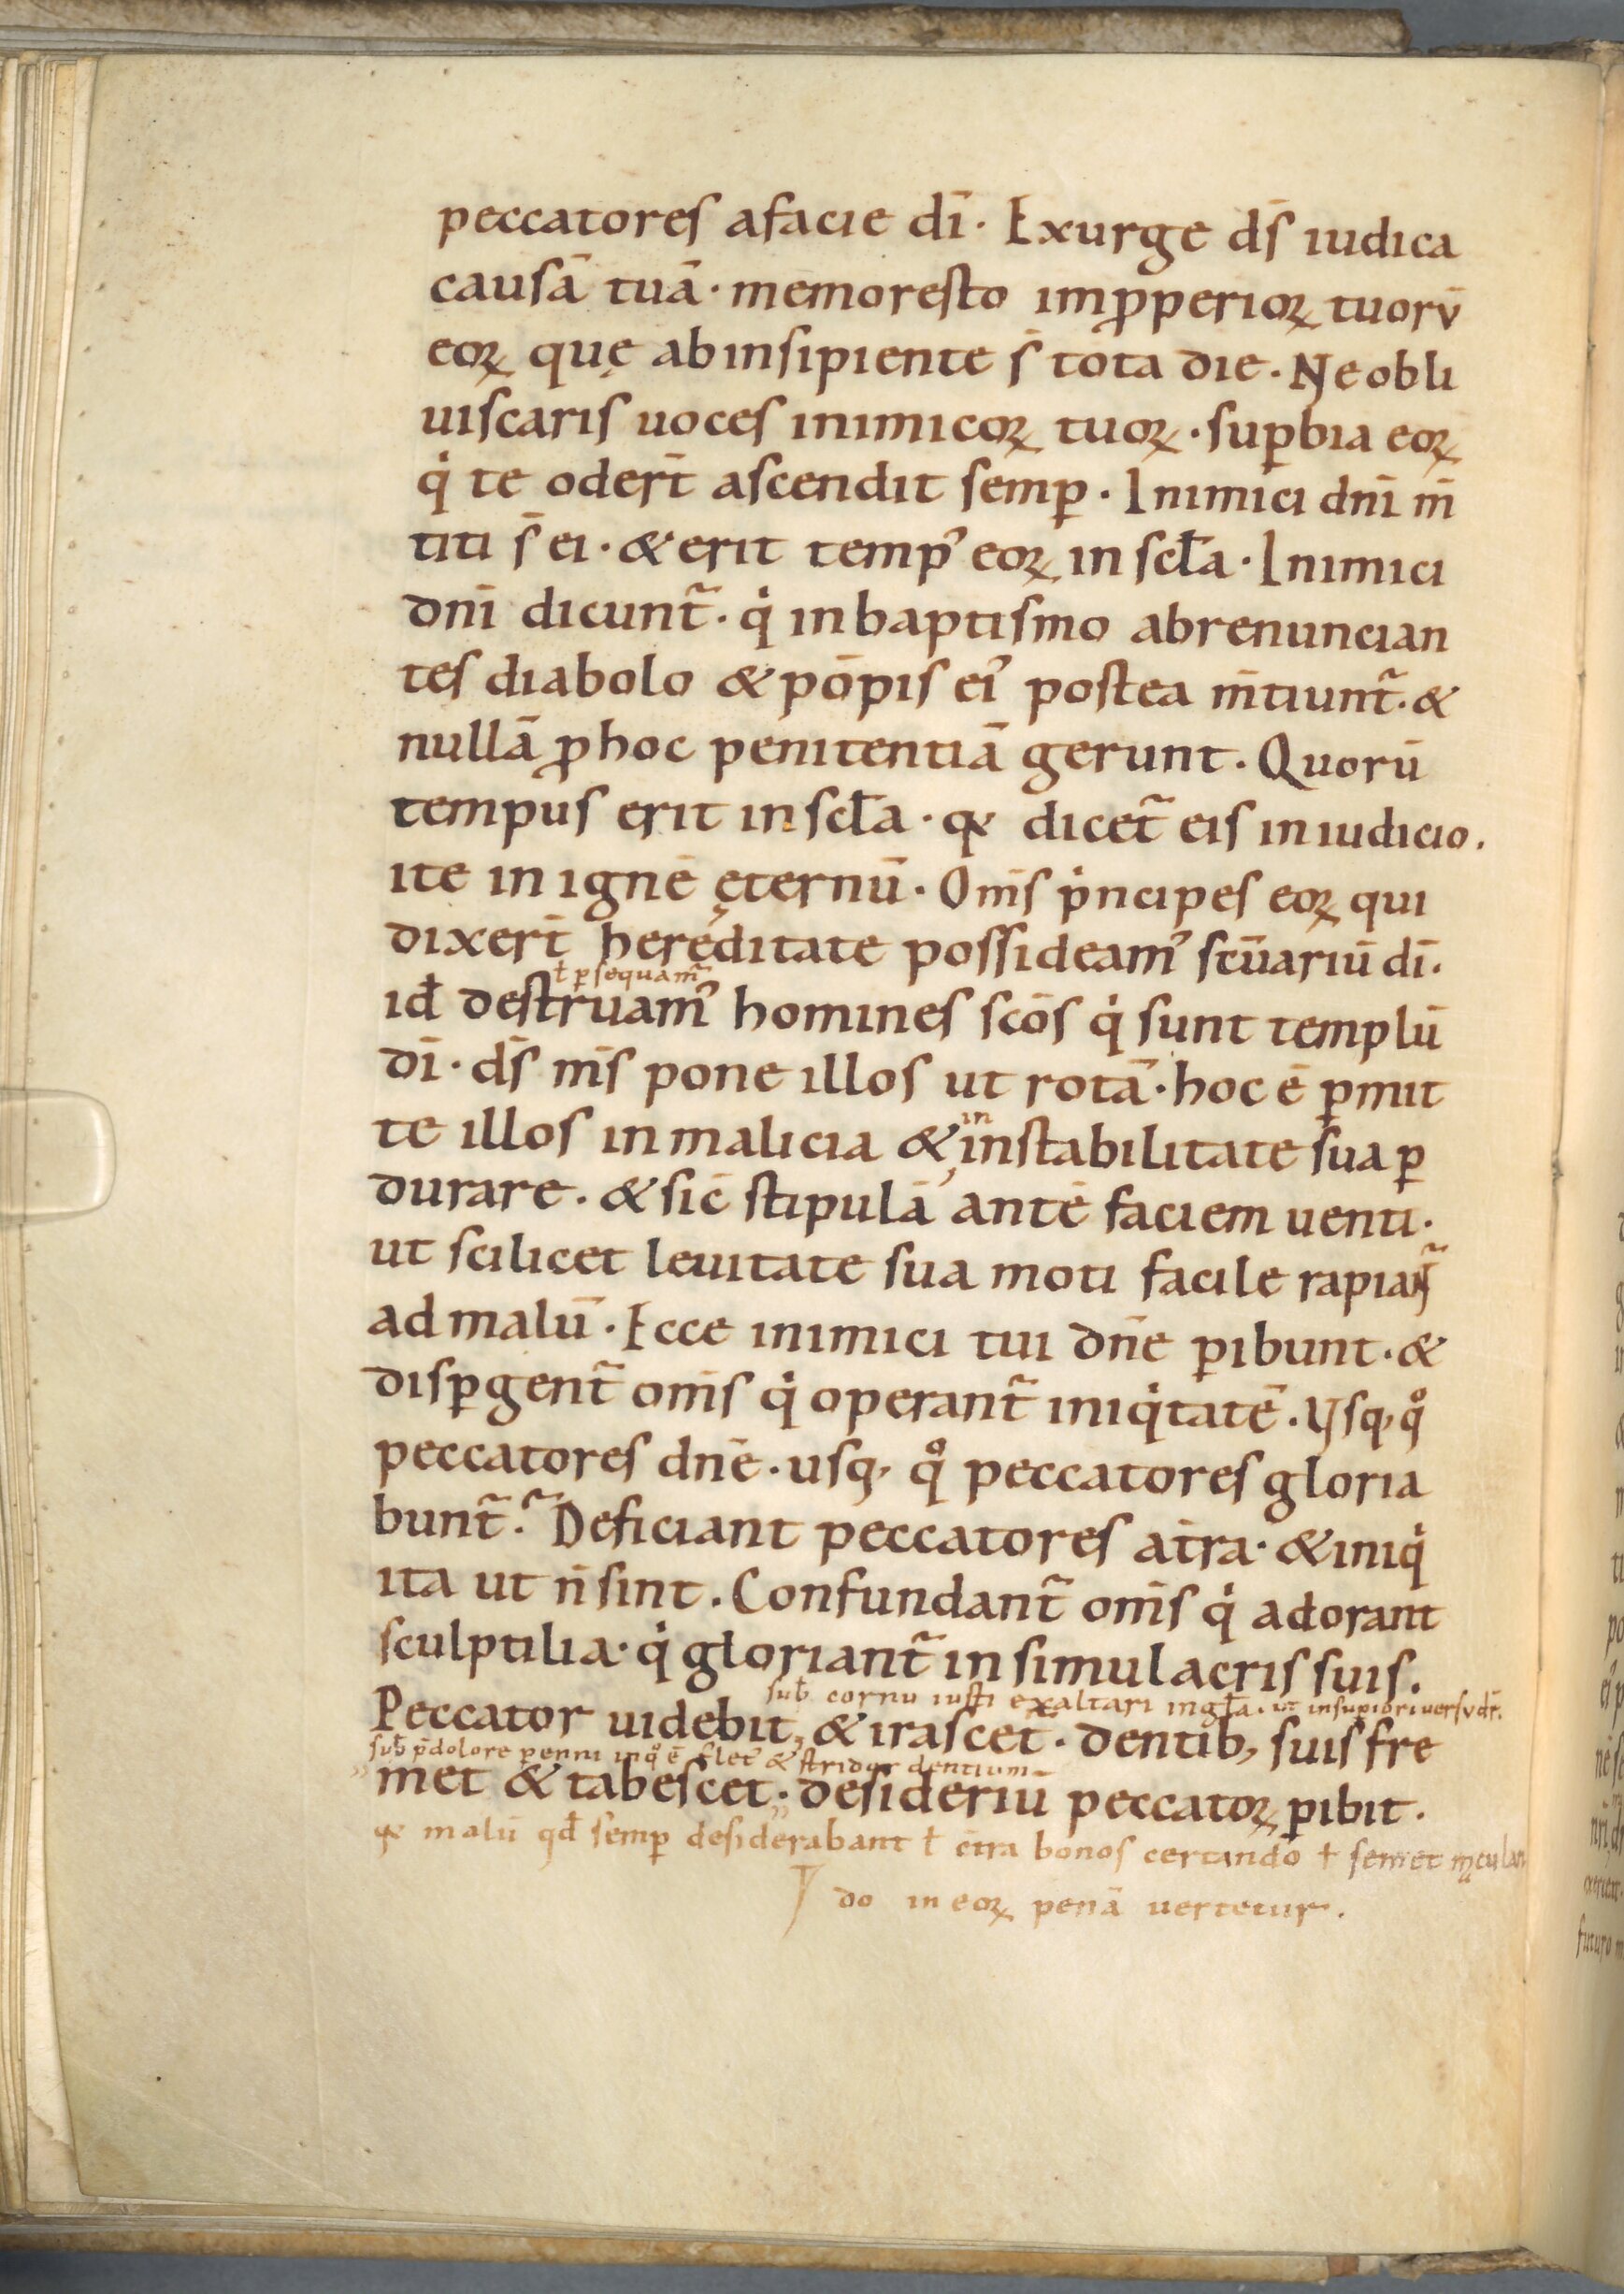 peccatores afacie dī. Exurge dš iudica
causā tuā. memoresto imꝓperioꝝ tuorū
eoꝝ quę abinsipiente š tota die. Neobli
uiscaris uoces inimicoꝝ tuoꝝ. suꝑbia eoꝝ
q̇ te oder̄t ascendit semꝑ. Inimici dn̄i m̄
titi š ei. & erit temp᾿ eoꝝ in scl̄a. Inimici
dn̄i dicunt̃. q̇ inbaptismo abrenuncian
tes diabolo & pōpis ei᾿ postea m̄tiunt̃. &
nullā ꝓhoc penitentiā gerunt. Quorū
tempus erit in scl̄a. qͣ dicet̃ eis in iudicio.
ite in ignē ęternū. Om̄s p̍ncipes eoꝝ qui
dixer̄t hereditate possideam᾿ scūariū dī.
ł ꝑsequam᾿
id̄ destruam᾿ homines scōs q̇ sunt templū
dī. dš m̄s pone illos ut rotā. hoc ē ꝑmit
te illos in malicia & instabilitate sua ꝑ
in
durare. & sic̄ stipulā ante faciem uenti.
ut scilicet leuitate sua moti facile rapiant̃
ad malū. Ecce inimici tui dn̄e ꝑibunt. &
disꝑgent̃ om̄s q̇ operant̃ iniq̇tatē. Vsq, q̊
peccatores dn̄e. usq, q̊ peccatores gloria
bunt̃. Deficiant peccatores at̄ra. & iniq̇
ita ut n̄ sint. Confundant̃ om̄s q̇ adorant
sculptilia. q̇ gloriant̃ in simulacris suis.
sub̄ cornu iusti exaltari ingl̄a. ut insuꝑiori uersu dr̄.
Peccator uidebit, & irascet̃. dentib, suis fre
sub̄ p̄dolore penni inq̊ ē flet᾿ & stridor dentium
met & tabescet. desideriū peccatoꝝ ꝑibit.
qͣ malū qd̄ semꝑ desiderabant ł c̄tra bonos certando ł semet
do in eoꝝ penā uertetur.